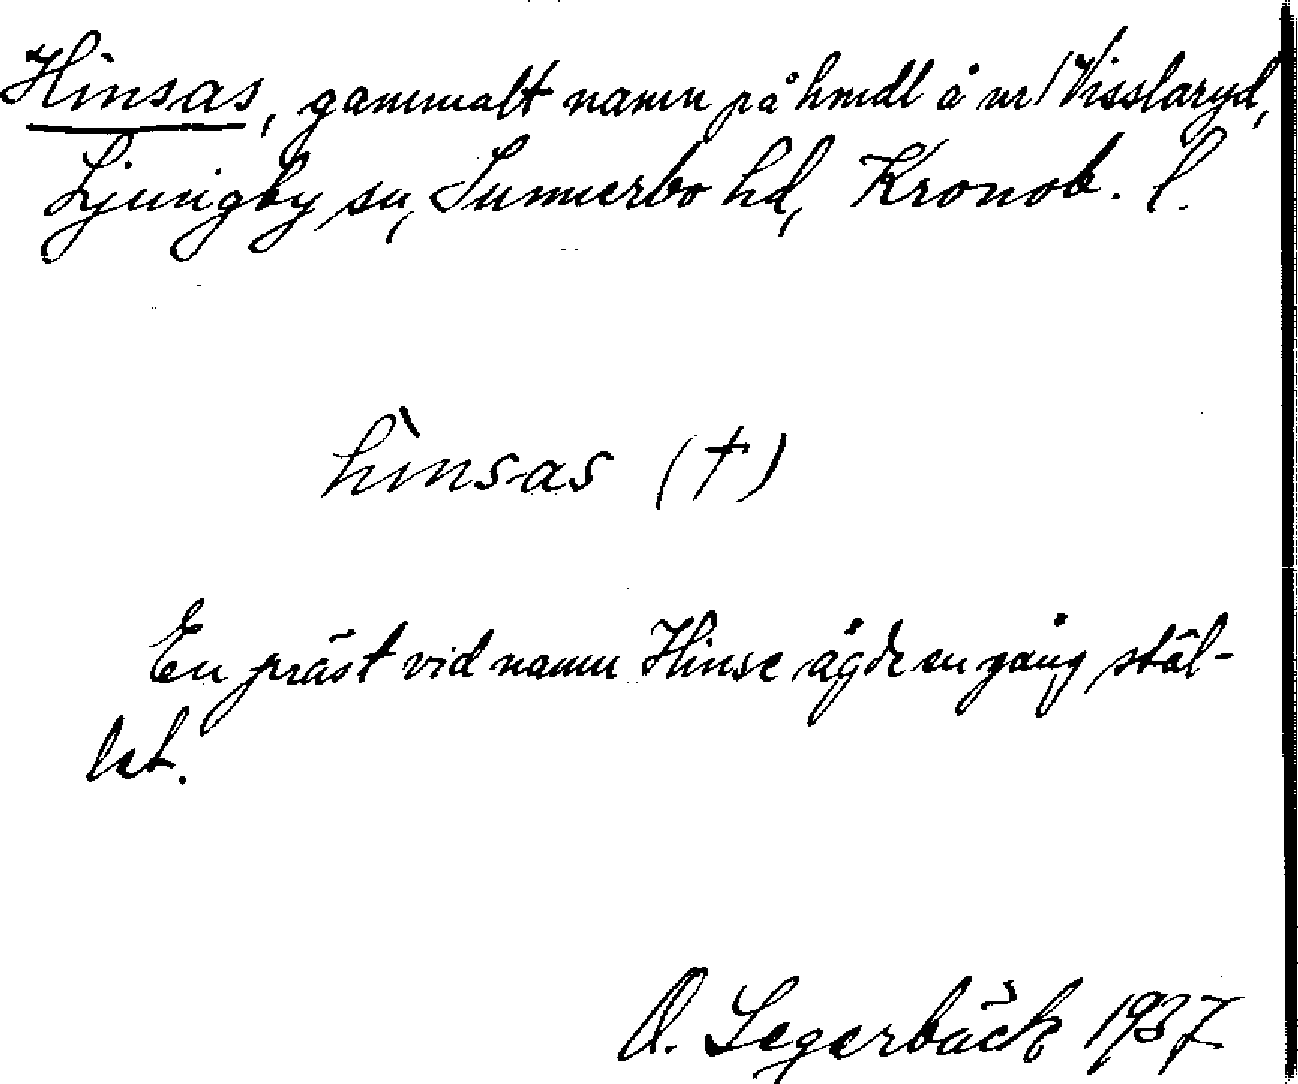 Hinsas, gammalt namn på hmdl å nr 1 Visslaryd,
Ljungby sn, Sunnerbo hd, Kronob. l.
hìnsas (†)
En präst vid namn Hinse ägde en gång stäl-
let.
O. Segerbäck 1937